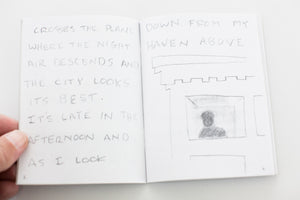 CROSSES THE PLANE
WHERE THE NIGHT
AIR DESCENDS AND
THE CITY LOOKS
ITS BEST.
IT'S LATE IN THE
AFTERNOON AND
AS I LOOK
DOWN FROM MY
HAVEN ABOVE